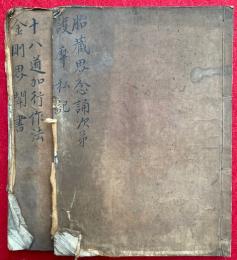 胎蔵界念誦次第
護摩私記
十八道加行作法
金剛界聞書